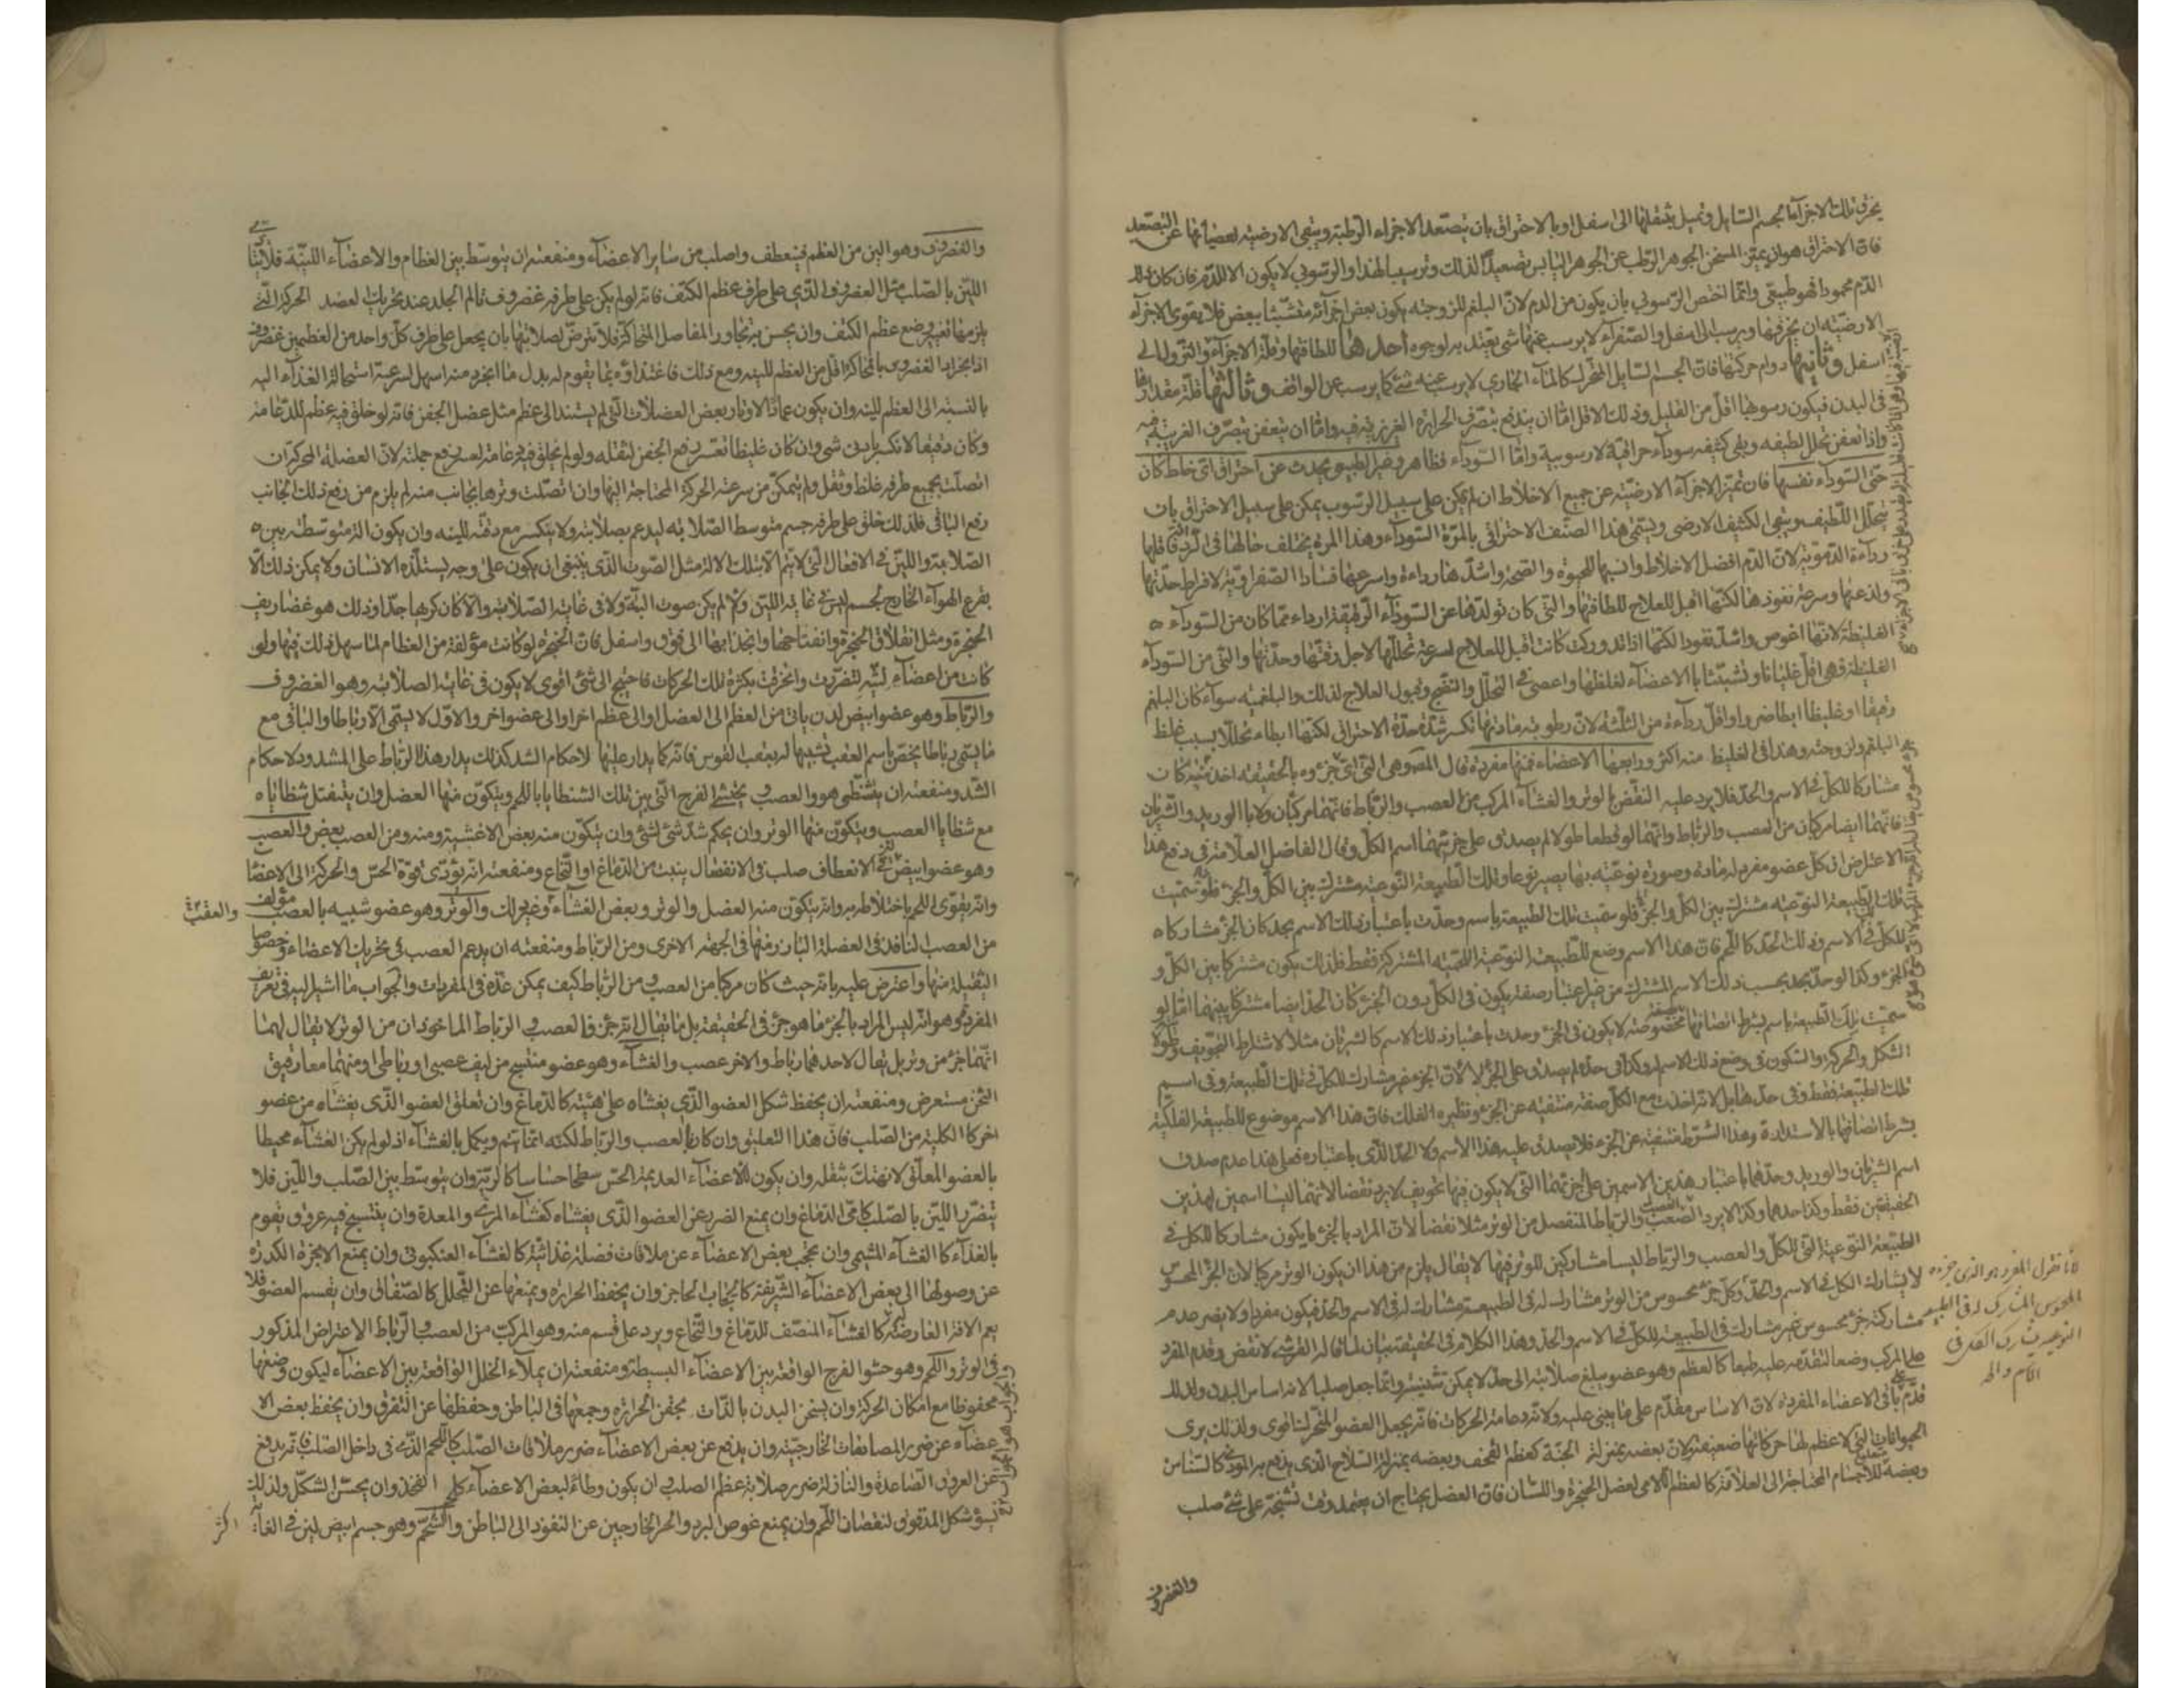 يحرق تلك الاجزآء الجسم السائل ويميل بثقلها الى اسفل او بالاحتراق بان يتصعد الاجزاء الرطبة ويبقى الارضية لعصيانها عن التصعد
فان الاحتراق هو ان يميز المسخن الجوهر الرطب عن الجوهر اليابس تصعيداً لذلك وترسيبا لهذا والرسوبى لا يكون الا للدم فان كان ذلك
الدم محمودا فهو طبيعى وانما اختص الرسوبى بان يكون من الدم لان البلغم للزوجته يكون بعض اجزائه متشبثا ببعض فلا يقوى الاجزآء
الارضية ان يخرقها ويرسب الى اسفل والصفرآء لا يرسب عنها شئ يعتد به لوجوه احدها للطافتها وقلة الاجزآء والنزول الى
اسفل وثانيها دوام حركتها فان الجسم السايل المتحرك كالمآء الجارى لا يرسب عنه شئ كما يرسب عن الواقف وثالثها قلة مقدارها
فى البدن فيكون رسوبها اقل من القليل وذلك الاقل اما ان يندفع بتصرف الحرارة الغريزية فيه واما ان يتعفن بتصرف الغريبة فيه
واذا تعفن تحلل لطيفه وبقى كثيفه سودآء حراقية لا رسوبية واما السودآء فظاهر وغير الطبيعى يحدث عن احتراق اى خلط كان
حتى السودآء نفسها فان تميز الاجزآء الارضية عن جميع الاخلاط ان لم يمكن على سبيل الرسوب يمكن على سبيل الاحتراق بان
يتحلل اللطيف ويبقى الكثيف الارضى ويسمى هذا الصنف الاحتراقى بالمرة السودآء وهذا المرة يختلف حالها فى الردآءة فاقلها
ردآءة الدموية لان الدم افضل الاخلاط وانسبها للحيوة والصحة واشدها رداءة واسرعها فسادا الصفراوية لافراط حدتها
ولذعها وسرعة نفوذها لكنها اقبل للعلاج للطافتها والتى كان تولدها عن السودآء الرقيقة ارداء مما كان من السودآء
الغليظة لانها اغوص واشد نفوذا لكنها اذا تدوركت كانت اقبل للعلاج لسرعة تحللها لاجل رقتها وحدتها والتى من السودآء
الغليظة فهى اقل غليانا وتشبثا بالاعضآء لغلظها واعصى فى التحلل والنضج وقبول العلاج لذلك والبلغمية سوآء كان البلغم
رقيقا او غليظا ابطا ضررا واقل ردآءة من الثلثة لان رطوبة مادتها تكسر شدة حدة الاحتراق لكنها ابطاء تحللا بسبب غلظ
البلغم ولزوجته وهذا فى الغليظ منه اكثر ورابعها الاعضاء فمنها مفردة قال المص وهى التى اى جزء بالحقيقة اخذ منه كان
مشاركا للكل فى الاسم والحد فلا يرد عليه النقض بالوتر والغشآء المركب من العصب والرباط فانهما مركبان ولا بالوريد والشريان
فانهما ايضا مركبان من العصب والرباط وانهما لو قطعا طولا لم يصدق على جزئيهما اسم الكل وقال الفاضل العلامة فى دفع هذا
الاعتراض ان كل عضو مفرد له مادة وصورة نوعية بها يصير نوعا وتلك الطبيعة النوعية مشترك بين الكل والجزء فلو سميت
تلك الطبيعة النوعية مشترك بين الكل والجزء فلو سميت تلك الطبيعة باسم وحدت باعتبار ذلك الاسم بحد كان الجزء مشاركا
للكل فى الاسم وذلك الحد كاللحم فان هذا الاسم وضع للطبيعة النوعية اللحمية المشتركة فقط فلذلك يكون مشتركا بين الكل و
الجزء وكذا لو حد بحد بحسب ذلك الاسم المشترك من غير اعتبار صفة يكون فى الكل دون الجزء كان الحد ايضا مشتركا بينهما اما لو
سميت تلك الطبيعة باسم بشرط اتصافها بصفة مخصوصة لا يكون فى الجزء وحدت باعتبار ذلك الاسم كالشريان مثلا لاشتراط التجويف وطول
الشكل والحركة والسكون فى وضع ذلك الاسم وكذا فى حده لم يصدق على الجزء لا لان الجزء غير مشارك للكل فى تلك الطبيعة وفى اسم
تلك الطبيعة فقط وفى حدها بل لانه اخذت مع الكل صفة منتفية عن الجزء ونظيره الفلك فان هذا الاسم موضوع للطبيعة الفلكية
بشرط اتصافها بالاستدارة وهذا الشرط منتفية عن الجزء فلا يصدق عليه هذا الاسم ولا الحد الذى باعتباره فعلى هذا عدم صدق
اسم الشريان والوريد وحدهما باعتبار هذين الاسمين على اجزئهما التى لا يكون فيها تجويف لا يرد نقضا لانهما ليسا اسمين لهذين
الحقيقتين فقط وكذا حدهما وكذا لا يرد العصب والرباط المنفصل من الوتر مثلا نقضا لان المراد بالجزء ما يكون مشاركا للكل فى
الطبيعة النوعية التى للكل والعصب والرباط ليسا مشاركين للوتر فيها لا يقال يلزم من هذا ان يكون الوتر مركبا لان الجزء المحسوس
لا يشارك الكل فى الاسم والحد وكل جزء محسوس من الوتر مشارك له فى الطبيعة مشارك له فى الاسم والحد فيكون مفردا ولا يضر عدم
مشاركة جزء محسوس غير مشارك فى الطبيعة للكل فى الاسم والحد وهذا الكلام فى الحقيقة بيان لما قاله القرشى لا نقض وقدم المفرد
على المركب وضعا لتقدمه عليه طبعا كالعظم وهو عضو يبلغ صلابته الى حد لا يمكن تثنيته وانما جعل صلبا لانه اساس البدن ولذلك
قدم على باقى الاعضاء المفردة لان الاساس مقدم على ما يبنى عليه ولانه دعامة الحركات فانه يجعل العضو المتحرك اقوى ولذلك يرى
الحيوانات التى لا عظم لها حركاتها ضعيفة ولان بعضه بمنزلة الجنة كعظم القحف وبعضه بمنزلة السلاح الذى يدفع به الموذى كالسناسن
وبعضه متعلق للاجسام المحتاجة الى العلاقة كالعظم اللامى لعضل الحنجرة واللسان فان العضل يحتاج ان يعتمد وقت تشنجه على شئ صلب
والغضروف
لانا نقول المفرد هو الذى جزءه
المحسوس المشارك له فى الطبيعة
النوعية يشارك الكل فى
الاسم والحد
والغضروف وهو الين من العظم فينعطف واصلب من ساير الاعضآء ومنفعته ان يتوسط بين العظام والاعضآء اللينة فلا يتاذى
اللين بالصلب مثل الغضروف الذى على طرف عظم الكتف فانه لو لم يكن على طرفه غضروف تالم الجلد عند تحريك العضد الحركة التى
يلزمها تغير وضع عظم الكتف وان يحسن به تجاور المفاصل المتحاكة فلا تترضض لصلابتها بان يجعل على طرف كل واحد من العظمين غضروف
اذ انجراد الغضروف بالمحاكة اقل من العظم للينه ومع ذلك فاغتذاؤه بما يقوم له بدل ما انجرد منه اسهل لسرعة استحالة الغذآء اليه
بالنسبة الى العظم للينه وان يكون عمادا لاوتار بعض العضلات التى لم يستند الى عظم مثل عضل الجفن فانه لو خلق فيه عظم للدعامة
وكان دقيقا لانكسر بادنى شئ وان كان غليظا تعسر رفع الجفن لثقله ولو لم يخلق فيه دعامة لعسر رفع جملته لان العضلة المحركة ان
اتصلت بجميع طرفه غلظ وثقل ولم يتمكن من سرعة الحركة المحتاجة اليها وان اتصلت وترها بجانب منه لم يلزم من رفع ذلك الجانب
رفع الباقى فلذلك خلق على طرفه جسم متوسط الصلابة ليدعم بصلابته ولا ينكسر مع دقته للينه وان يكون آلة متوسطة بين
الصلابة واللين فى الافعال التى لا يتم الا بتلك الالة مثل الصوت الذى ينبغى ان يكون على وجه يستلذه الانسان ولا يمكن ذلك الا
بقرع الهوآء الخارج لجسم ليس فى غاية اللين والا لم يكن صوت البتة ولا فى غاية الصلابة والا كان كريها جدا وذلك هو غضاريف
الحنجرة ومثل انغلاق الحنجرة وانفتاحها وانجذابها الى فوق واسفل فان الحنجرة لو كانت مؤلفة من العظام لما سهل ذلك فيها ولو
كانت من اعضآء لينة لتضررت وانخرقت بكثرة تلك الحركات فاحتيج الى شئ اقوى لا يكون فى غاية الصلابة وهو الغضروف
والرباط وهو عضو ابيض لدن ياتى من العظم الى العضل او الى عظم اخر او الى عضو اخر والاول لا يسمى الا رباطا والباقى مع
ما يسمى رباطا يختص باسم العقب تشبيها له بعقب القوس فانه كما يدار عليها لاحكام الشد كذلك يدار هذا الرباط على المشدود لاحكام
الشد ومنفعته ان يتشظى هو والعصب ويحتشى الفرج التى بين تلك الشظايا باللحم ويتكون منها العضل وان ينفتل شظاياه
مع شظايا العصب ويتكون منها الوتر وان يحكم شد شئ لشئ وان يتكون منه بعض الاغشية ومنه ومن العصب بعض والعصب
وهو عضو ابيض لين فى الانعطاف صلب فى الانفصال ينبت من الدماغ او النخاع ومنفعته انه يؤدى قوة الحس والحركة الى الاعضآ
وانه يقوى اللحم باختلاطه به وانه يتكون منه العضل والوتر وبعض الغشآء وغير ذلك والوتر وهو عضو شبيه بالعصب مؤلف
من العصب النافذ فى العضلة البارز منها فى الجهة الاخرى ومن الرباط ومنفعته ان يدعم العصب فى تحريك الاعضاء وخصوصا
الثقيلة منها واعترض عليه بانه حيث كان مركبا من العصب ومن الرباط كيف يمكن عده فى المفردات والجواب ما اشير اليه فى تعريف
المفرد وهو انه ليس المراد بالجزء ما هو جزء فى الحقيقة بل ما يقال انه جزء فالعصب والرباط الماخوذان من الوتر لا يقال لهما
انهما جزء من وتر بل يقال لاحدهما رباط والاخر عصب والغشآء وهو عضو منتسج من ليف عصبى او رباطى او منهما معا رقيق
الثخن مستعرض ومنفعته ان يحفظ شكل العضو الذى يغشاه على هيئته كالدماغ وان تعلق العضو الذى يغشاه من عضو
اخر كالكلية من الصلب فان هذا التعليق وان كان بالعصب والرباط لكنه انما يتم ويكمل بالغشآء اذ لو لم يكن الغشآء محيطا
بالعضو المعلق لانهتك بثقله وان يكون للاعضآء العديمة الحس سطحا حساسا كالرية وان يتوسط بين الصلب واللين فلا
يتضرر اللين بالصلب كامى الدماغ وان يمنع الضرر عن العضو الذى يغشاه كغشآء المرئ والمعدة وان ينتسج فيه عروق يقوم
بالغذآء كالغشآء المشيمى وان يحجب بعض الاعضآء عن ملاقات فضلة غذائية كالغشآء العنكبوتى وان يمنع الابخرة الكدرة
عن وصولها الى بعض الاعضآء الشريفة كالحجاب الحاجز وان يحفظ الحرارة ويمنعها عن التحلل كالصفاق وان يقسم العضو فلا
يعم الافة العارضة كالغشآء المنصف للدماغ والنخاع ويرد على قسم منه وهو المركب من العصب والرباط الاعتراض المذكور
فى الوتر واللحم وهو حشو الفرج الواقعة بين الاعضآء البسيطة ومنفعته ان يملآء الخلل الواقعة بين الاعضآء ليكون وضعها
محفوظا مع امكان الحركة وان يسخن البدن بالذات بحقن الحرارة وجمعها فى الباطن وحفظها عن التفرق وان يحفظ بعض الا
عضآء عن ضرر المصادمات الخارجية وان يدفع عن بعض الاعضآء ضرر ملاقات الصلب كاللحم الذى فى داخل الصلب فانه يدفع
عن العروق الصاعدة والنازلة ضرر صلابة عظم الصلب وان يكون وطاء لبعض الاعضآء كلحم الفخذ وان يحسن الشكل ولذلك
يسؤ شكل المدقوق لنقصان اللحم وان يمنع غوص البرد والحر الخارجين عن النفوذ الى الباطن والشحم وهو جسم ابيض لين فى الغاية